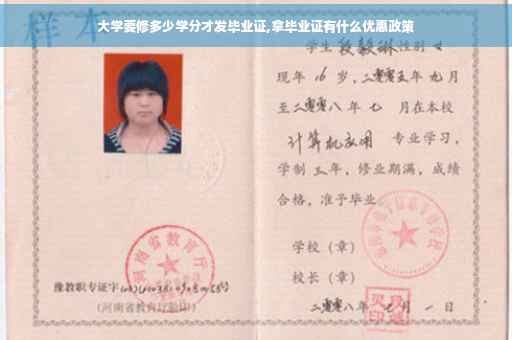 大学要修多少学分才发毕业证,拿毕业证有什么优惠政策
样本
学生 段毅琳 性别 女
现年 16 岁，二零零五年 九月
至二零零八年 七 月在本校
计算机应用 专业学习，
学制 三 年，修业期满，成绩
合格，准予毕业
学校（章）
校长（章）
二零零八年 七 月 一 日
河南省教育厅
豫教职专证字
号
(河南省教育厅验印)